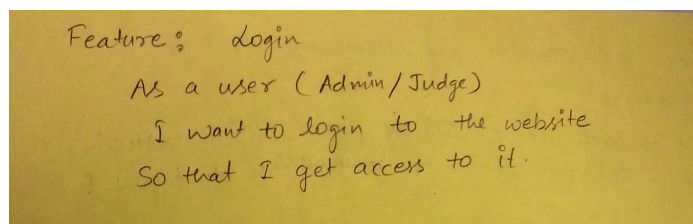 Feature: Login
As a user (Admin/Judge)
I want to login to the website
So that I get access to it.